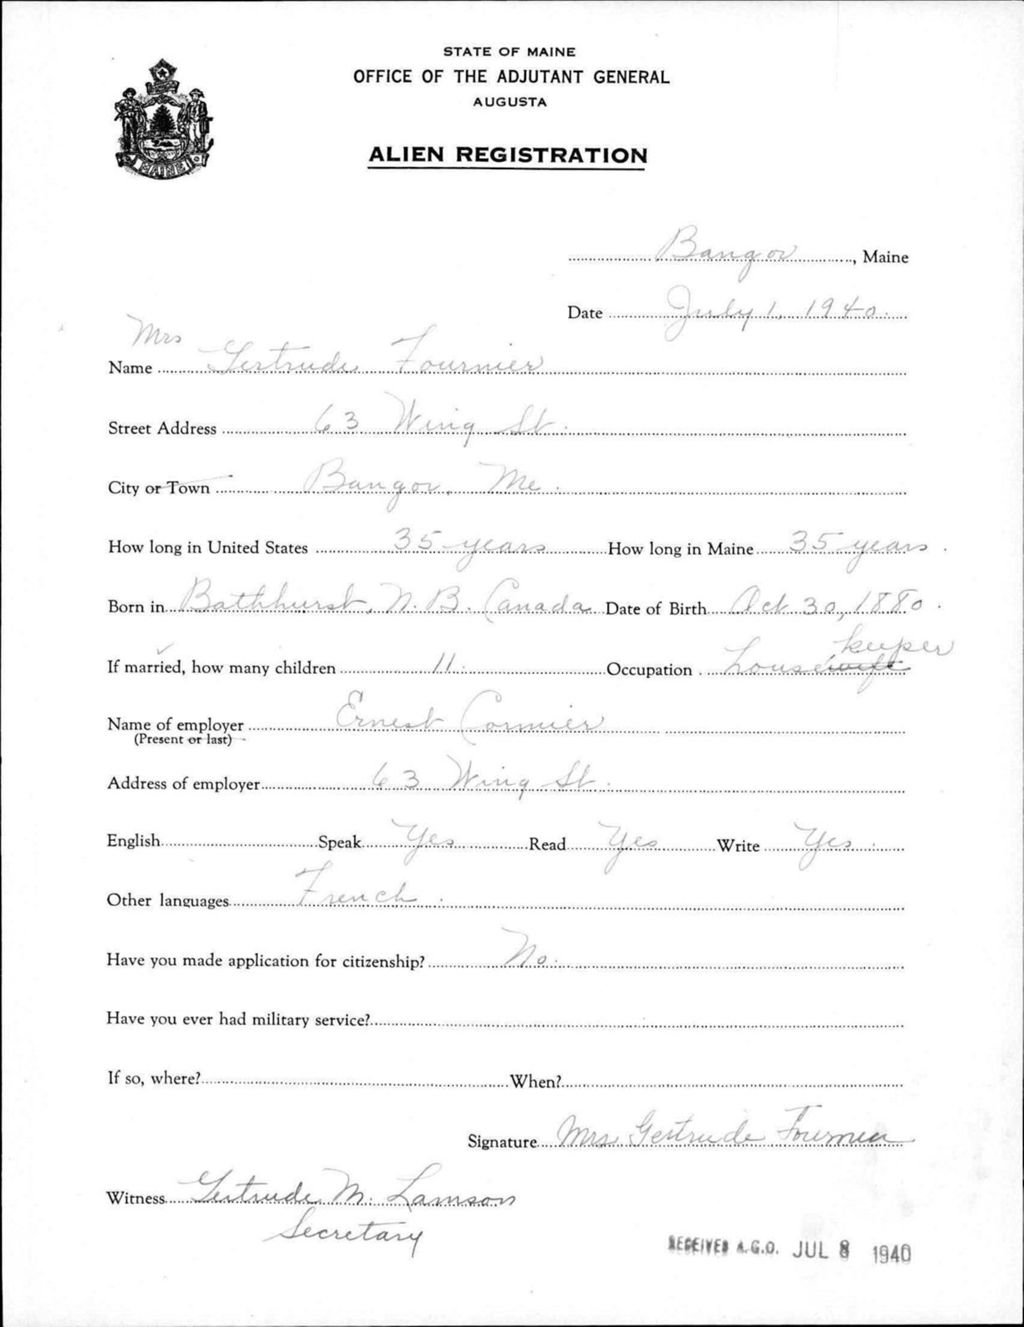 STATE OF MAINE
OFFICE OF THE ADJUTANT GENERAL
AUGUSTA
ALIEN REGISTRATION
Bangor, Maine
Date July 1, 1940.
Mrs
Name Gertrude Fournier
Street Address 63 Wing St.
City or Town Bangor, Me.
How long in United States 35 years How long in Maine 35 years.
Born in Bathhurst, N.B. Canada Date of Birth Oct 30, 1880.
keeper
If married, how many children 11. Occupation housewife
Name of employer Ernest Cormier
(Present or last)
Address of employer 63 Wing St.
English Speak Yes Read Yes Write Yes.
Other languages French.
Have you made application for citizenship? No.
Have you ever had military service?
If so, where? When?
Signature Mrs Gertrude Fournier
Witness Gertrude M. Lamson
Secretary
RECEIVED A.G.O. JUL 8 1940